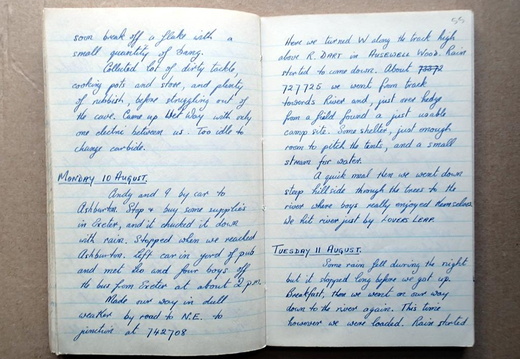 soon break off a flake with a
small quantity of bang.
Collected lot of dirty tackle,
cooking pots and stove, and plenty
of rubbish, before struggling out of
the cave. Came up Wet Way with only
one electric between us. Too idle to
change carbide.
MONDAY 10 AUGUST.
Andy and I by car to
Ashburton. Stop & buy some supplies
in Exeter, and it chucked it down
with rain. Stopped when we reached
Ashburton. Left car in yard of pub
and met Leo and four boys off
the bus from Exeter at about 2 p.m.
Made our way in dull
weather by road to N.E. to
junction at 742708
Here we turned W along the track high
above R. DART in AUSEWELL WOOD. Rain
started to come down. About 73372
727725 we went from track
towards River and, just over hedge
from a field found a just usable
camp site. Some shelter, just enough
room to pitch the tents, and a small
stream for water.
A quick meal then we went down
steep hillside through the trees to the
river where boys really enjoyed themselves
We hit river just by LOVERS LEAP.
TUESDAY 11 AUGUST.
Some rain fell during the night
but it stopped long before we got up.
Breakfast, then we went on our way
down to the river again. This time
however we were loaded. Rain started